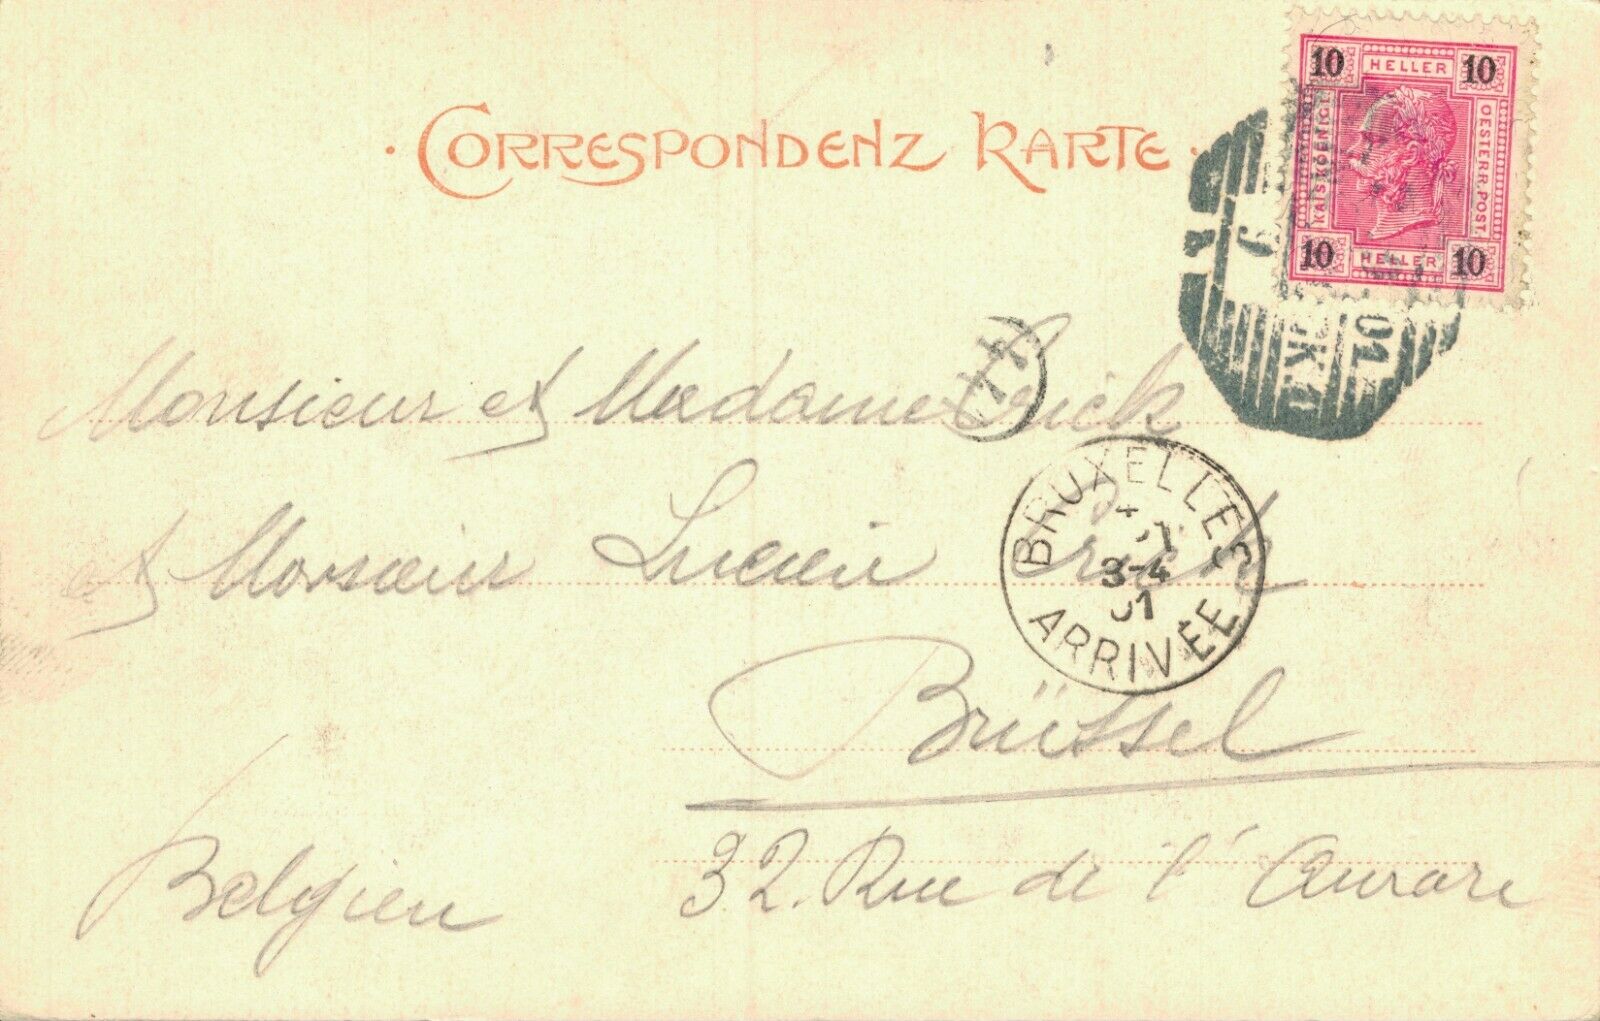 · CORRESPONDENZ KARTE ·
10 HELLER 10
KAIS.KOENIGL.
OESTERR.POST.
10 HELLER 10
9
01
Monsieur et Madame Crick
et Monsieur Lucien Crick
BRUXELLES
3-4
01
ARRIVÉE
Brüssel
Belgien
32. Rue de l'Aurore